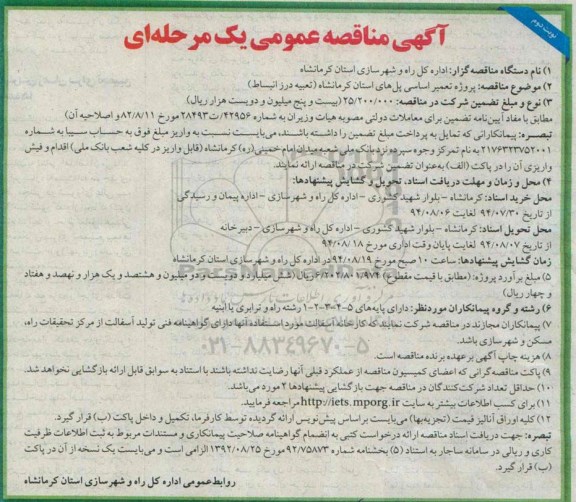 نوبت دوم
آگهی مناقصه عمومی یک مرحله‌ای
۱) نام دستگاه مناقصه گزار: اداره کل راه و شهرسازی استان کرمانشاه
۲) موضوع مناقصه: پروژه تعمیر اساسی پل‌های استان کرمانشاه (تعبیه درز انبساط)
۳) نوع و مبلغ تضمین شرکت در مناقصه: ۲۵/۲۰۰/۰۰۰ (بیست و پنج میلیون و دویست هزار ریال)
مطابق با مفاد آیین‌نامه تضمین برای معاملات دولتی مصوبه هیات وزیران به شماره ۴۲۹۵۶/ت۲۸۴۹۳ مورخ ۸۲/۸/۱۱ و اصلاحیه آن)
تبصره: پیمانکارانی که تمایل به پرداخت مبلغ تضمین را داشته باشند، می‌بایست نسبت به واریز مبلغ فوق به حساب سیبا به شماره
۲۱۷۶۳۲۳۷۵۲۰۰۱ به نام تمرکز وجوه سپرده نزد بانک ملی شعبه میدان امام خمینی(ره) کرمانشاه (قابل واریز در کلیه شعب بانک ملی) اقدام و فیش
واریزی آن را در پاکت (الف) به‌عنوان تضمین شرکت در مناقصه ارائه نمایند.
۴) محل و زمان و مهلت دریافت اسناد، تحویل و گشایش پیشنهادها:
محل خرید اسناد: کرمانشاه - بلوار شهید کشوری - اداره کل راه و شهرسازی - اداره پیمان و رسیدگی
از تاریخ ۹۴/۰۷/۳۰ لغایت ۹۴/۰۸/۰۶
محل تحویل اسناد: کرمانشاه - بلوار شهید کشوری - اداره کل راه و شهرسازی - دبیرخانه
از تاریخ ۹۴/۰۸/۰۷ لغایت پایان وقت اداری مورخ ۹۴/۰۸/۱۸
زمان گشایش پیشنهادها: ساعت ۱۰ صبح مورخ ۹۴/۰۸/۱۹ در اداره کل راه و شهرسازی استان کرمانشاه
۵) مبلغ برآورد پروژه: (مطابق با قیمت مقطوع) ریال (میلیارد و دویست و دو میلیون و هشتصد و یک هزار و نهصد و هفتاد
و چهار ریال)
۶) رشته و گروه پیمانکاران موردنظر: دارای پایه‌های ۵-۴-۳-۲-۱ رشته راه و ترابری یا ابنیه
۷) پیمانکاران مجازند در مناقصه شرکت نمایند که کارخانه آسفالت مورد استفاده آنها دارای گواهینامه فنی تولید آسفالت از مرکز تحقیقات راه،
مسکن و شهرسازی باشد.
۸) هزینه چاپ آگهی بر عهده برنده مناقصه است.
۹) پاکت مناقصه گرانی که اعضای کمیسیون مناقصه از عملکرد قبلی آنها رضایت نداشته باشند با استناد به سوابق قابل ارائه بازگشایی نخواهد شد.
۱۰) حداقل تعداد شرکت‌کنندگان در مناقصه جهت بازگشایی پیشنهادها ۲ مورد می‌باشد.
۱۱) برای کسب اطلاعات بیشتر به سایت http://iets.mporg.ir مراجعه فرمایید.
۱۲) کلیه اوراق آنالیز قیمت (تجزیه‌بها) می‌بایست بر اساس پیش‌نویس ارائه گردیده توسط کارفرما، تکمیل و داخل پاکت (ب) قرار گیرد.
تبصره: جهت دریافت اسناد مناقصه ارائه درخواست کتبی به انضمام گواهینامه صلاحیت پیمانکاری و مستندات مربوط به ثبت اطلاعات ظرفیت
کاری و ریالی در سامانه ساجار به استناد (۵) بخشنامه شماره ۹۲/۷۵۸۷۳ مورخ ۱۳۹۲/۰۸/۲۵ الزامی است و می‌بایست یک نسخه از آن در پاکت
(ب) قرار گیرد.
روابط عمومی اداره کل راه و شهرسازی استان کرمانشاه
۰۲۱-۸۸۳۴۹۶۷۰-۵